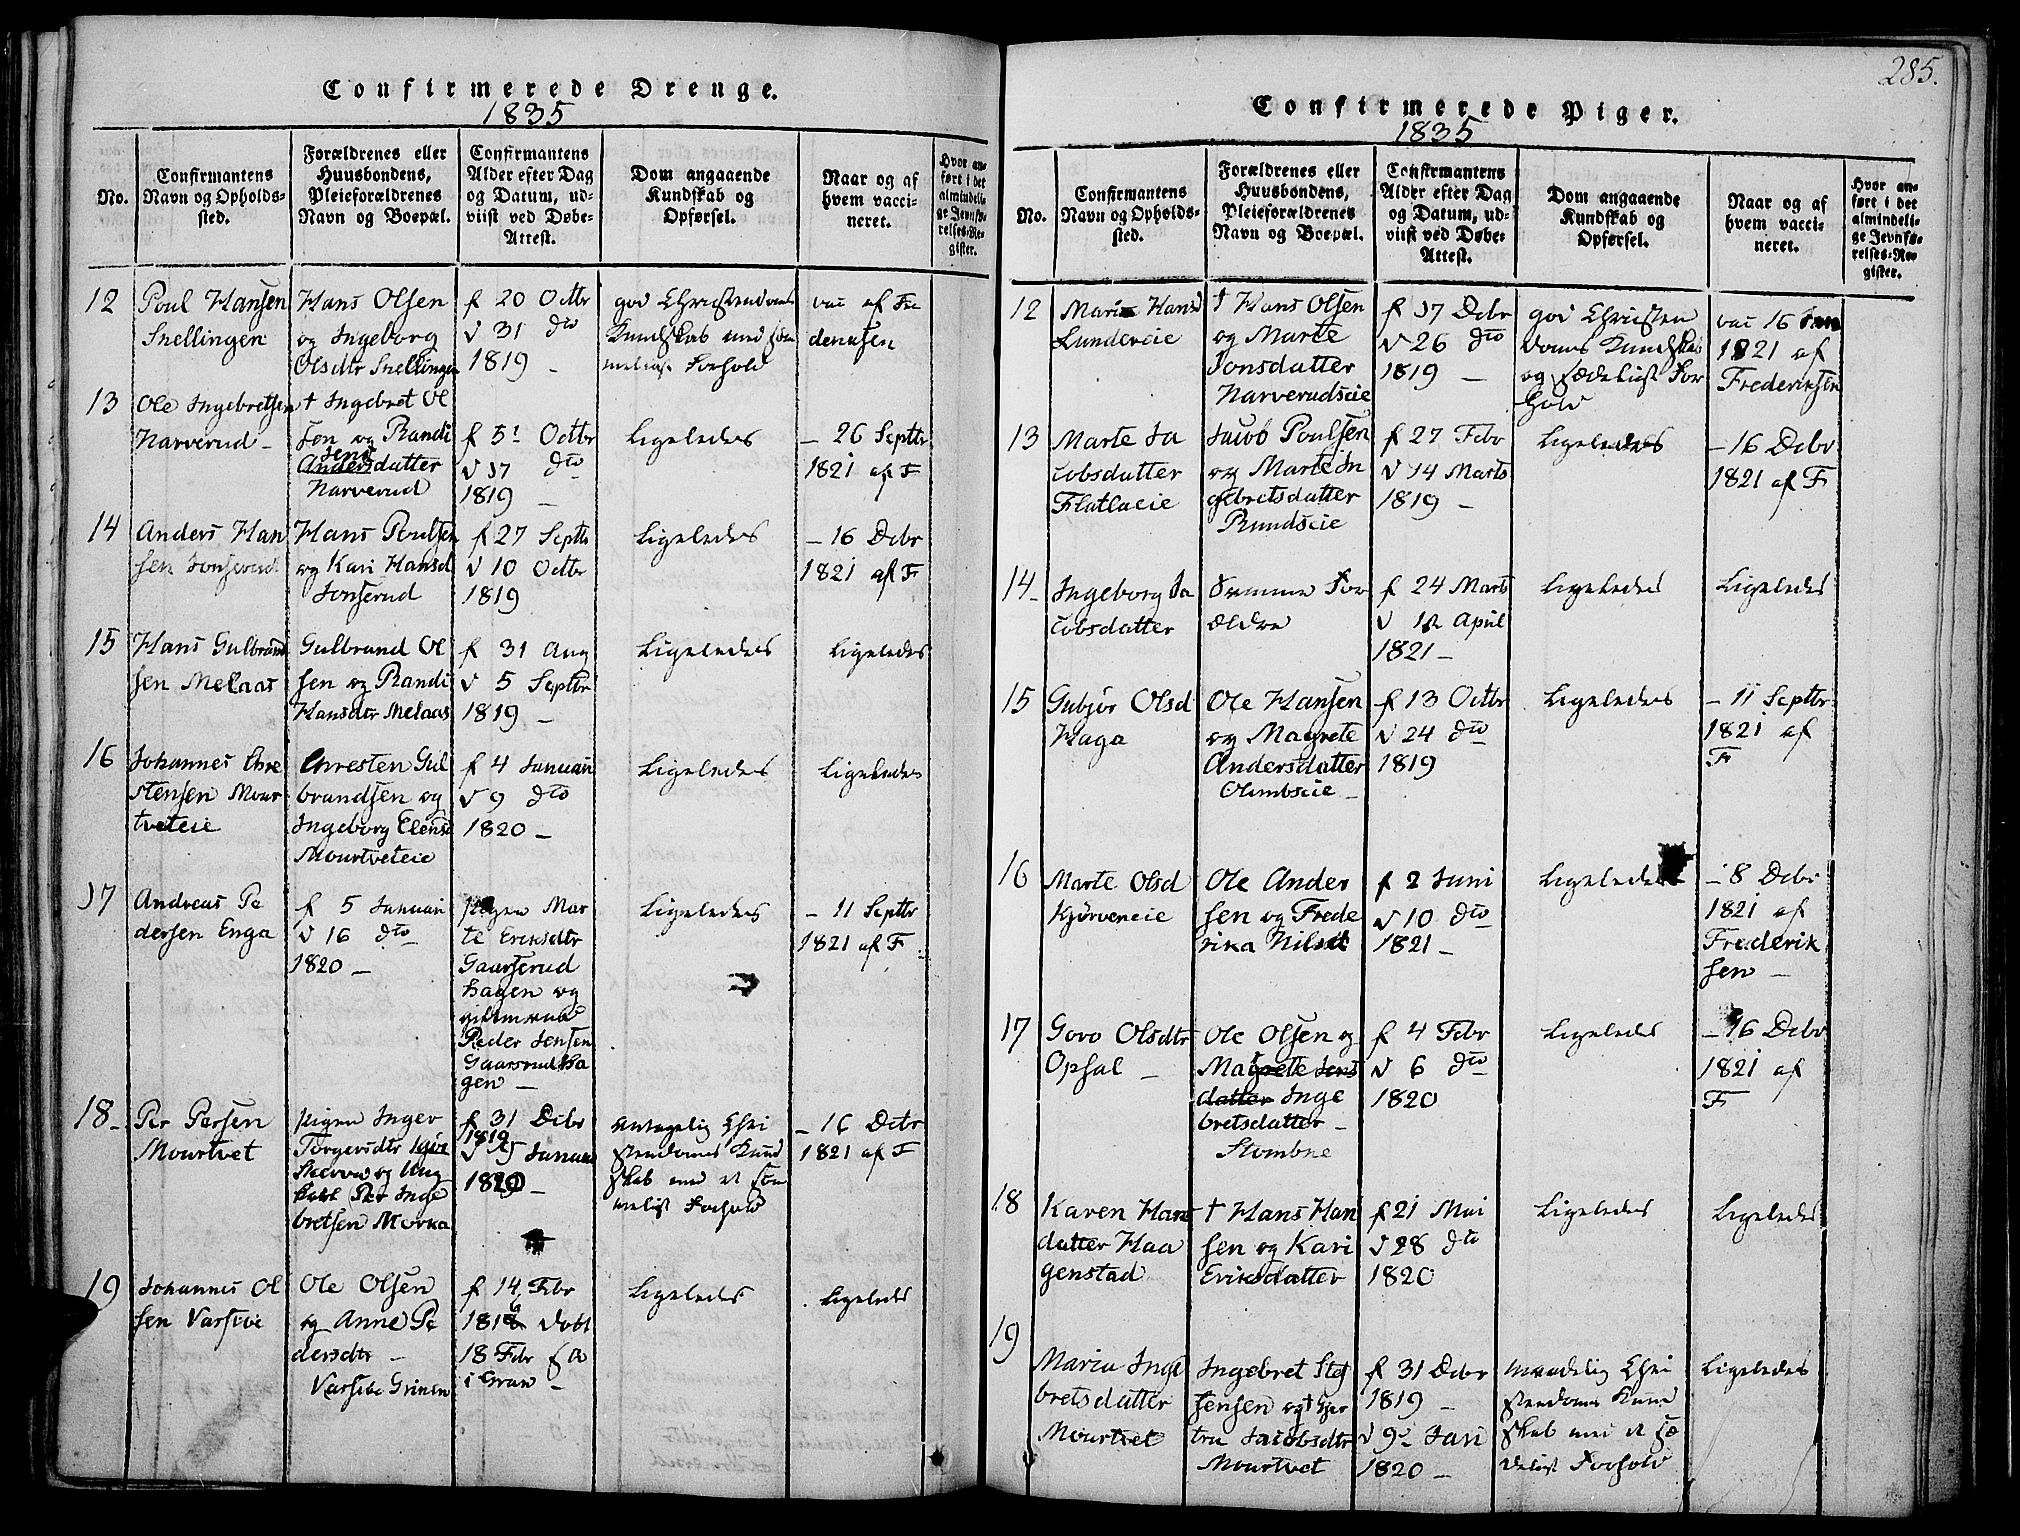 Confirmerede Drenge.
1835
No.
Confirmantens
Navn og Opholds-
sted.
Forældrenes eller
Huusbondens,
Pleieforældrenes
Navn og Boepæl.
Confirmantens
Alder efter Dag
og Datum, ud-
viist ved Døbe-
Attest.
Dom angaaende
Kundskab og
Opførsel.
Naar og af
hvem vacci-
neret.
Hvor an-
ført i det
almindeli-
ge Jevnfø-
relses-Re-
gister.
12
Poul Hansen
Snellingen
Hans Olsen
og Ingeborg
Olsdtr Snellingen
f 20 Octbr
d 31 dto
1819 -
god Christendoms
Kundskab med søm
meligt Forhold
vac af Fre
deriksen
13
Ole Ingebretsen
Narverud -
† Ingebret Ol
sen og Randi
Jens
Andersdatter
Narverud
f 5t Octbr
d 17 dto
1819 -
Ligeledes
- 26 Septbr
1821 af F
14
Anders Han
sen Jonserud
Hans Poulsen
og Kari Hansd
Jonserud
f 27 Septb
d 10 Octbr
1819
Ligeledes
- 16 Debr
1821 af F
15
Hans Gulbrand
sen Melaas
Gulbrand Ol
sen og Randi
Hansdtr Melaas
f 31 Aug
d 5 Septbr
1819 -
Ligeledes
Ligeledes
16
Johannes Chre
stensen Mour
tveteie
Chresten Gul
brandsen og
Ingeborg Elensd
Mourtveteie
f 4 Januari
d 9 dto
1820 -
Ligeledes
Ligeledes
17
Andreas Pe
dersen Enga
f 5 Januari
d 16 dto
1820 -
pigen Mar
te Eriksdtr
Gaarserud
hagen og
Peder Jensen
Gaarserudha
gen -
Ligeledes
- 11 Septbr
1821 af F
18-
Per Persen
Mourtvet
pigen Inger
Torgersdtr
og Ung
karl Per Inge
bretsen Morka
f 31 Debr
1819
d 9 Januar
1820 -
antagelig Chri
stendoms Kund
skab med et søm
meligt Forhold
- 16 Debr
1821 af F
19
Johannes Ol
sen Varseie
Ole Olsen
og Anne Pe
dersdtr -
f 14 Febr
1816 døbt
18 Febr
i Gran -
Ligeledes
Ligeledes
285.
Confirmerede Piger.
1835
No.
Confirmantens
Navn og Opholds-
sted.
Forældrenes eller
Huusbondens,
Pleieforældrenes
Navn og Boepæl.
Confirmantens
Alder efter Dag
og Datum, ud-
viist ved Døbe-
Attest.
Dom angaaende
Kundskab og
Opførsel.
Naar og af
hvem vacci-
neret.
Hvor an-
ført i det
almindeli-
ge Jevnfø-
relses-Re-
gister.
12
Marie Hansd
Lundereie
† Hans Olsen
og Marte
Jonsdatter
Narverudseie
f 17 Debr
d 26 dto
1819 -
god Christen
doms Kundskab
og sædeligt For
hold
vac 16
1821 af
Frederiksen
13
Marte Ja
cobsdatter
Flatlaeie
Jacob Poulsen
og Marte In
gebretsdatter
Rundseie
f 27 Febr
d 14 Marts
1819 -
Ligeledes
- 16 Debr
1821 af F
14-
Ingeborg Ja
cobsdatter
Samme For
ældre
f 24 Marts
d 12 April
1821 -
Ligeledes
Ligeledes
15
Gubjør Olsd
Haga
Ole Hansen
og Magrete
Andersdatter
Olimbseie -
f 13 Octbr
d 24 dto
1819
Ligeledes
- 11 Septbr
1821 af
F
16
Marte Olsd
Kjørveneie
Ole Ander
sen og Frede
rika Nilsdt
f 2 Juni
d 10 dto
1821 -
Ligeledes
- 8 Debr
1821 af
Frederik
sen -
17
Goro Olsdtr
Opsal -
Ole Olsen og
Magrete Jens
datter Inge
bretsdatter -
Stombne
f 4 Febr
d 6 dto
1820
Ligeledes
- 16 Debr
1821 af
F
18
Karen Hans
datter Haa
genstad
† Hans Han
sen og Kari
Eriksdatter
f 21 Mai
d 28 dto
1820
Ligeledes
Ligeledes
19
Maria Inge
bretsdatter
Mourtvet
Ingebret Stef
fensen og † Gjer
tru Jacobsdtr
Mourtvet
f 31 Debr
1819 -
d 9 Jari
1820 -
maadelig Chri
stendoms Kund
skab med et sæ
deligt Forhold
Ligeledes